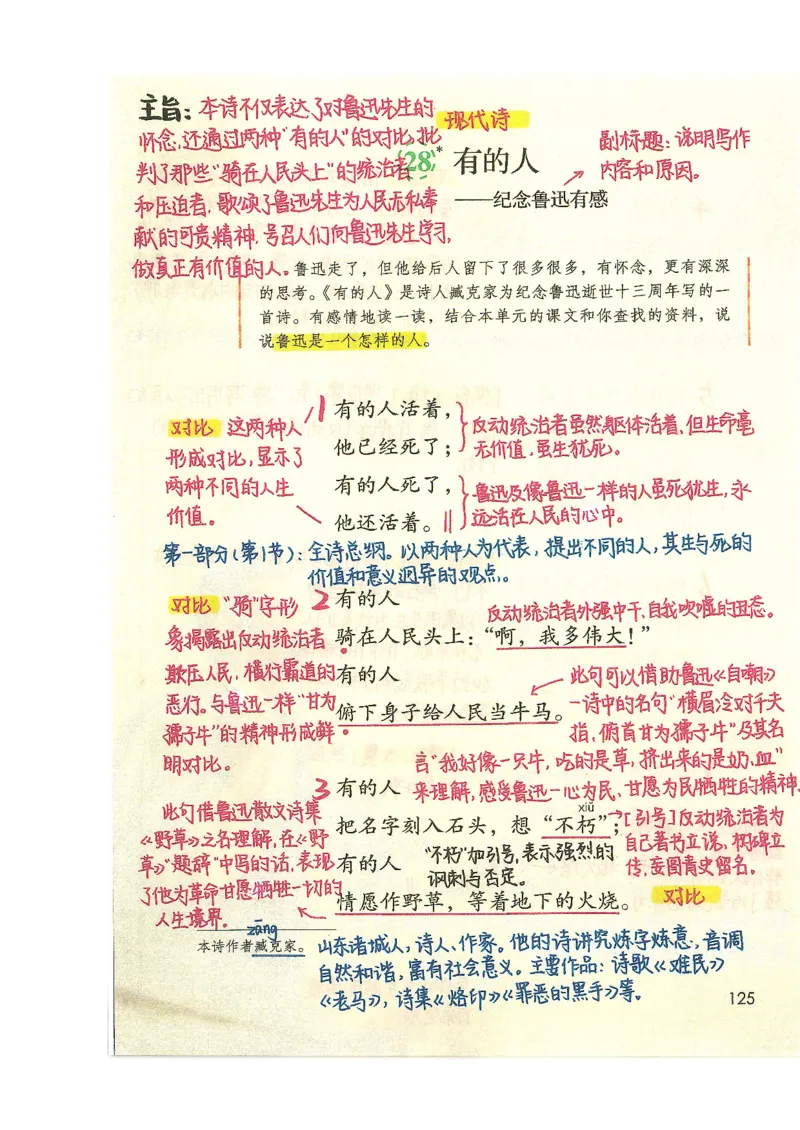 主旨：本诗不仅表达了对鲁迅先生的
怀念，还通过两种“有的人”的对比，批
判了那些“骑在人民头上”的统治者
和压迫者，歌颂了鲁迅先生为人民无私奉
献的可贵精神，号召人们向鲁迅先生学习，
做真正有价值的人。
现代诗
28* 有的人
——纪念鲁迅有感
副标题：说明写作
内容和原因。
鲁迅走了，但他给后人留下了很多很多，有怀念，更有深深
的思考。《有的人》是诗人臧克家为纪念鲁迅逝世十三周年写的一
首诗。有感情地读一读，结合本单元的课文和你查找的资料，说
说鲁迅是一个怎样的人。
对比 这两种人
形成对比，显示了
两种不同的人生
价值。
1 有的人活着，
他已经死了；
有的人死了，
他还活着。‖
反动统治者虽然躯体活着，但生命毫
无价值，虽生犹死。
鲁迅及像鲁迅一样的人虽死犹生，永
远活在人民的心中。
第一部分（第1节）：全诗总纲。以两种人为代表，提出不同的人，其生与死的
价值和意义迥异的观点。
对比 “骑”字形
象揭露出反动统治者
欺压人民，横行霸道的
恶行。与鲁迅一样“甘为
孺子牛”的精神形成鲜
明对比。
2 有的人
骑在人民头上：“啊，我多伟大！”
有的人
俯下身子给人民当牛马。
反动统治者外强中干，自我吹嘘的丑态。
此句可以借助鲁迅《自嘲》
一诗中的名句“横眉冷对千夫
指，俯首甘为孺子牛”及其名
言“我好像一只牛，吃的是草，挤出来的是奶、血”
来理解，感受鲁迅一心为民、甘愿为民牺牲的精神。
3 有的人
xiǔ
把名字刻入石头，想“不朽”；
有的人
情愿作野草，等着地下的火烧。
此句借鲁迅散文诗集
《野草》之名理解，在《野
草》“题辞”中写的话，表现
了他为革命甘愿牺牲一切的
人生境界。
“不朽”加引号，表示强烈的
讽刺与否定。
[引号]反动统治者为
自己著书立说，树碑立
传，妄图青史留名。
对比
zāng
本诗作者臧克家。
山东诸城人，诗人、作家。他的诗讲究炼字炼意，音调
自然和谐，富有社会意义。主要作品：诗歌《难民》
《老马》，诗集《烙印》《罪恶的黑手》等。
125